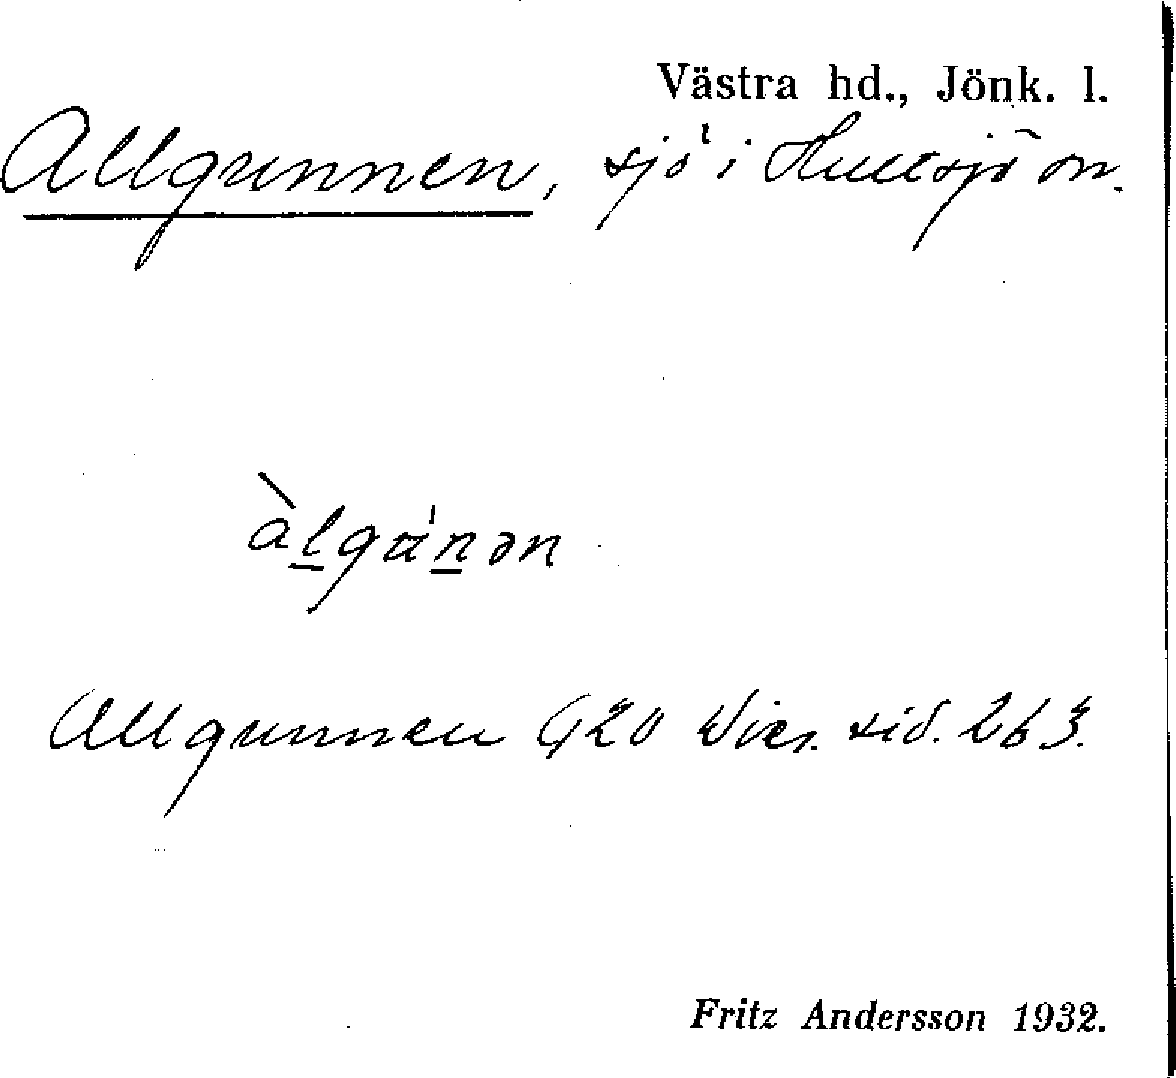 Västra hd., Jönk. l.
Allgunnen, sjö i Hultsjö sn.
àlgánən
Allgunnen G20 Wies. sid. 263.
Fritz Andersson 1932.